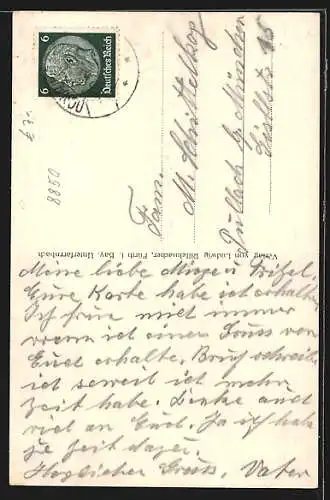 Deutsches Reich
6 6
8850
Fam.
M. Schüttelkopf
Pullach b. München
15
Verlag von Ludwig Riffelmacher, Fürth i. Bay., Unterfarrnbach
Meine liebe
Eure Karte habe ich erhalten
Ich freu mich immer
wenn ich einen Gruss von
Euch erhalte. Brief schreibe
ich soweit ich mehr
Zeit habe. Denke auch
viel an Euch. Ja ich habe
je Zeit dazu.
Herzlicher Gruss, Vater